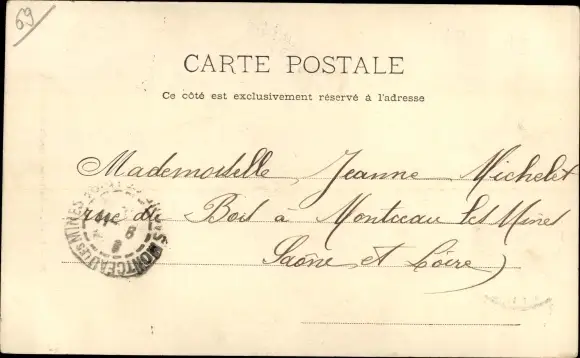 69
CARTE POSTALE
Ce côté est exclusivement réservé à l'adresse
Mademoiselle Jeanne Michelet
rue du Bois à Montceau les Mines
Saône et Loire)
MONTCEAU-LES-MINES